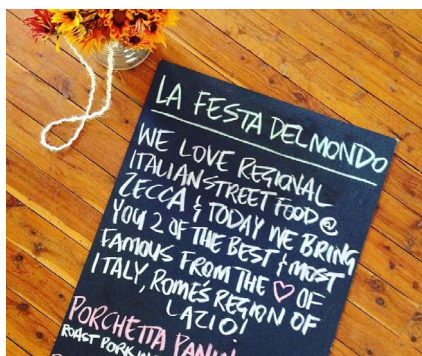 LA FESTA DEL MONDO
WE LOVE REGIONAL
ITALIAN STREET FOOD @
ZECCA & TODAY WE BRING
YOU 2 OF THE BEST & MOST
FAMOUS FROM THE ♡ OF
ITALY, ROME'S REGION OF
LAZIO!
PORCHETTA PANINI
ROAST PORK IN